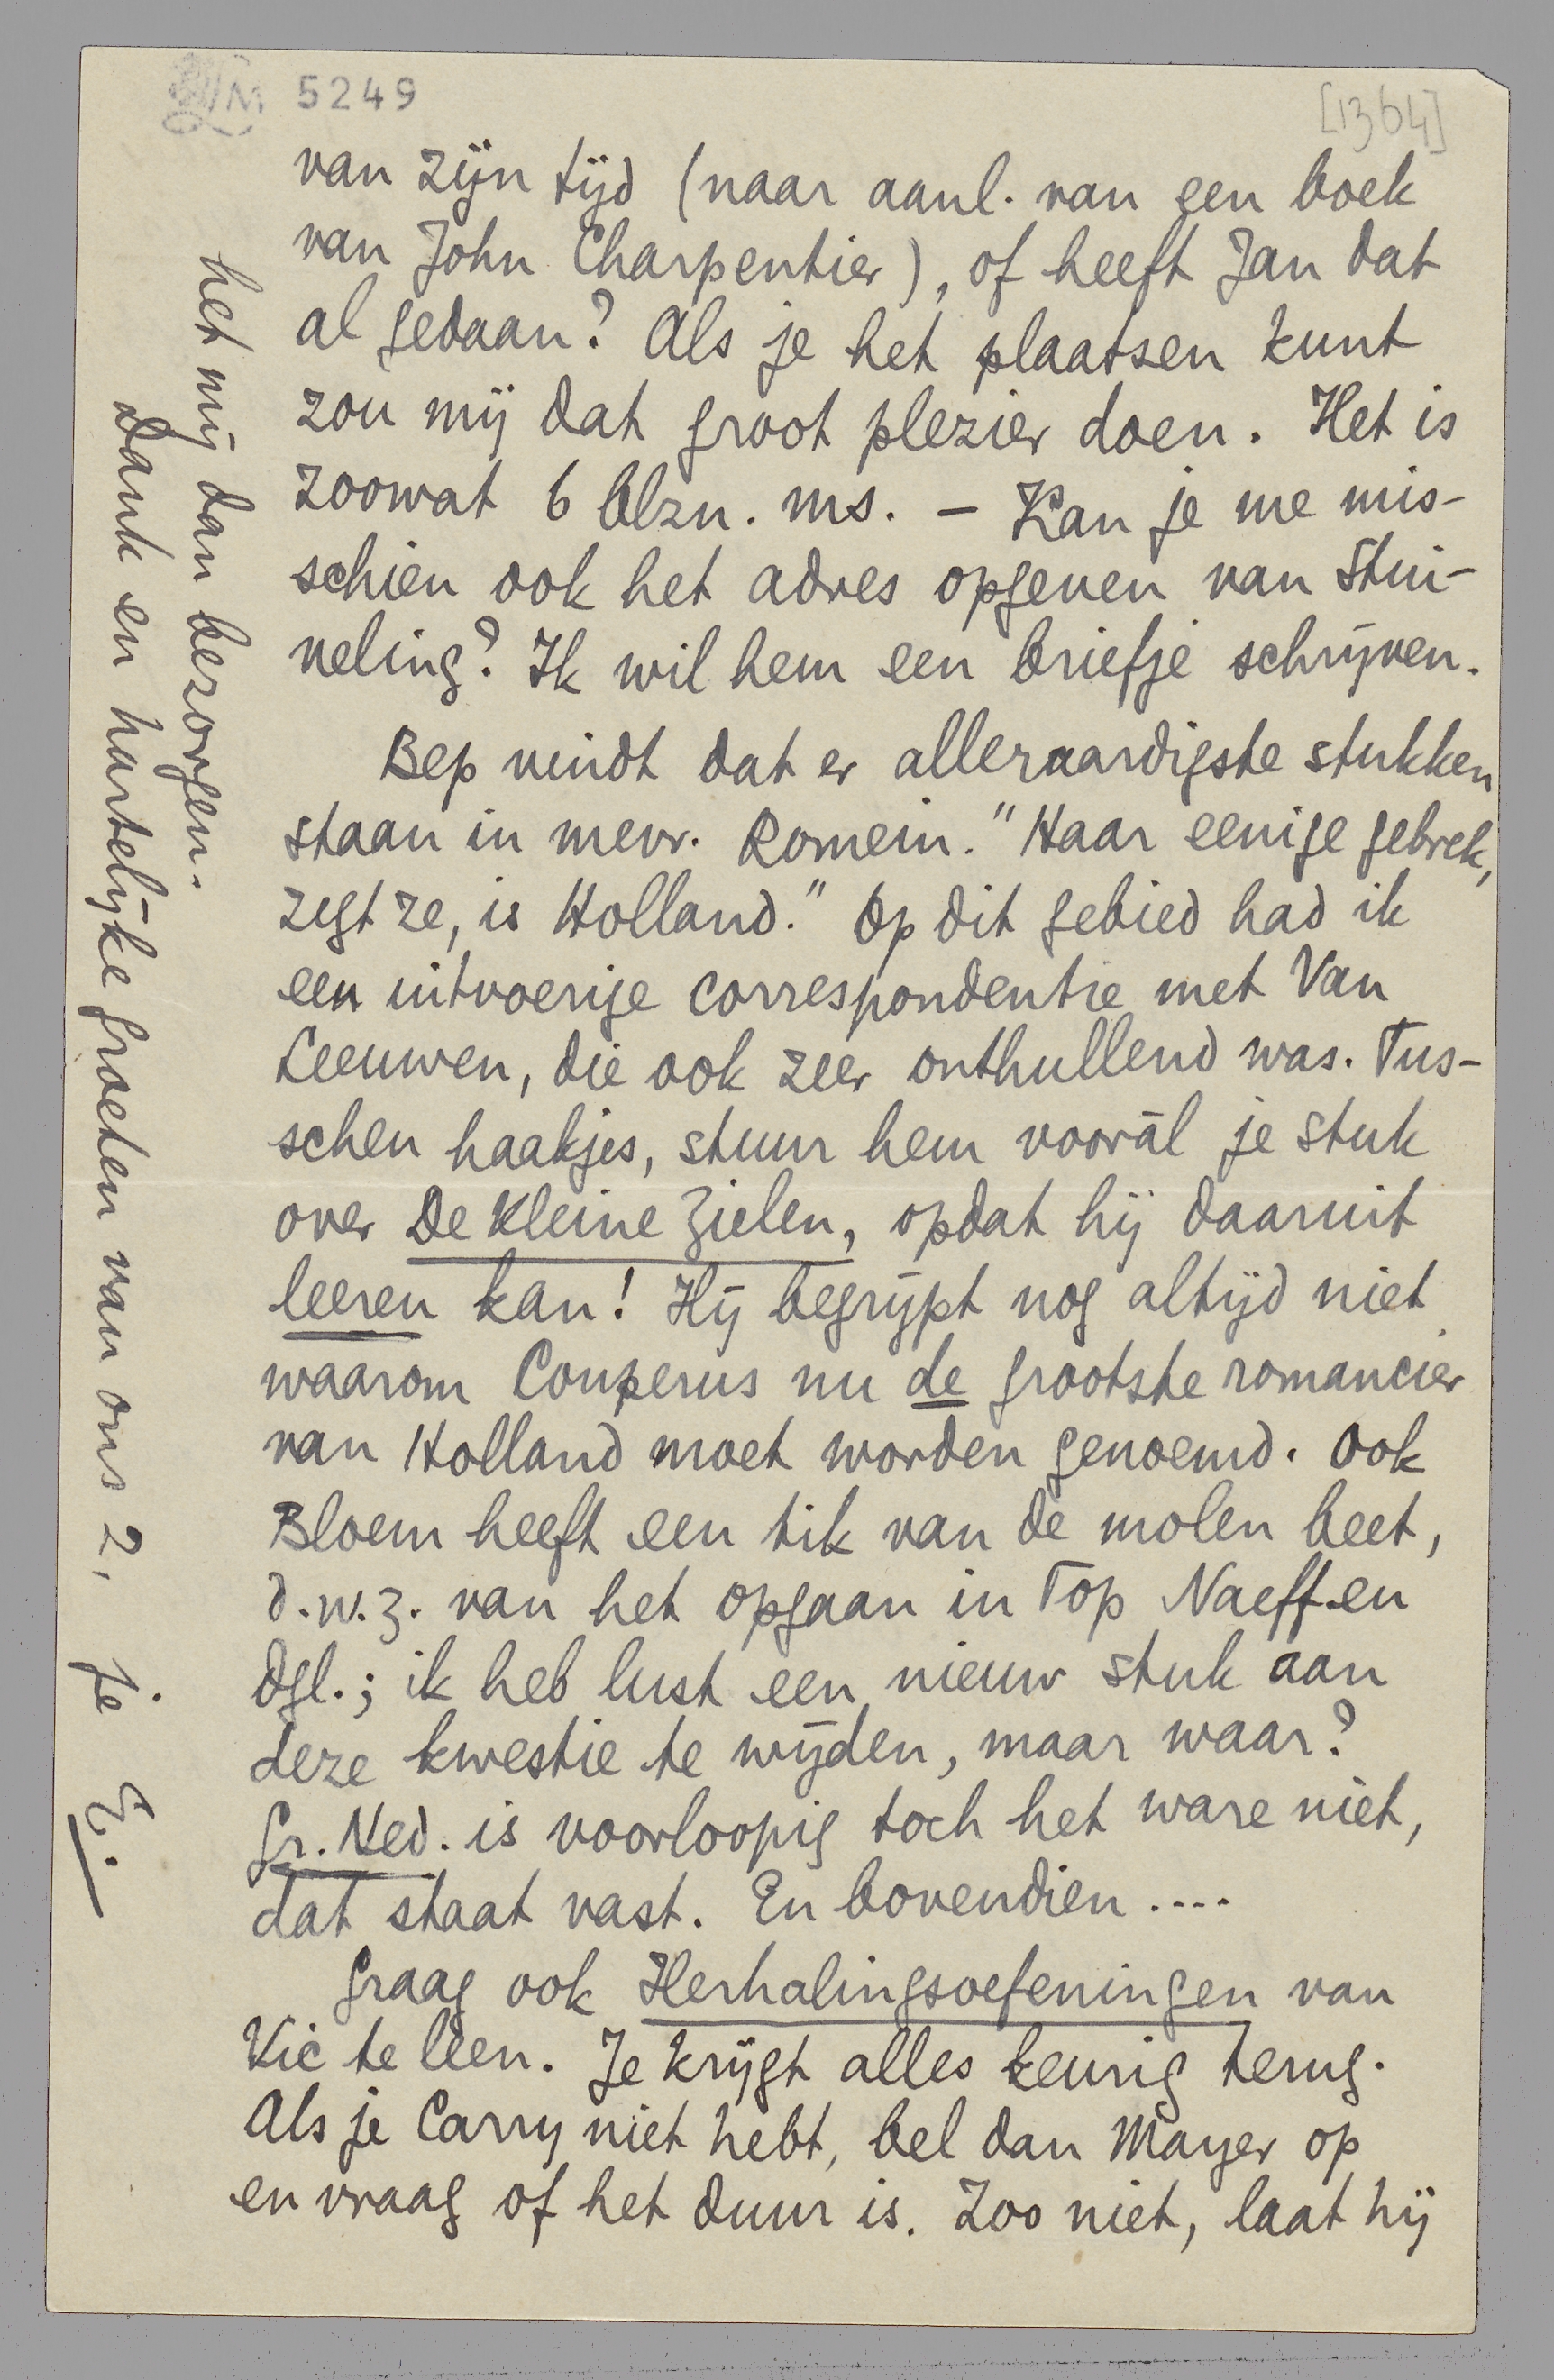 LM 5249
[1364]
van zijn tijd (naar aanl. van een boek
van John Charpentier), of heeft Jan dat
al gedaan? Als je het plaatsen kunt
zou mij dat groot plezier doen. Het is
zoowat 6 blzn. ms. – Kan je me mis-
schien ook het adres opgeven van Stui-
veling? Ik wil hem een briefje schrijven.
Bep vindt dat er alleraardigste stukken
staan in mevr. Romein. "Haar eenige gebrek,
zegt ze, is Holland." Op dit gebied had ik
een uitvoerige correspondentie met Van
Leeuwen, die ook zeer onthullend was. Tus-
schen haakjes, stuur hem vooràl je stuk
over De Kleine Zielen, opdat hij daaruit
leeren kan! Hij begrijpt nog altijd niet
waarom Couperus nu de grootste romancier
van Holland moet worden genoemd. Ook
Bloem heeft een tik van de molen beet,
d.w.z. van het opgaan in Top Naeff en
dgl.; ik heb lust een nieuw stuk aan
deze kwestie te wijden, maar waar?
Gr. Ned. is voorloopig toch het ware niet,
dat staat vast. En bovendien ....
Graag ook Herhalingsoefeningen van
Vic te leen. Je krijgt alles keurig terug.
Als je Carry niet hebt, bel dan Mayer op
en vraag of het duur is. Zoo niet, laat hij
het mij dan bezorgen.
Dank en hartelijke groeten van ons 2,
je E.